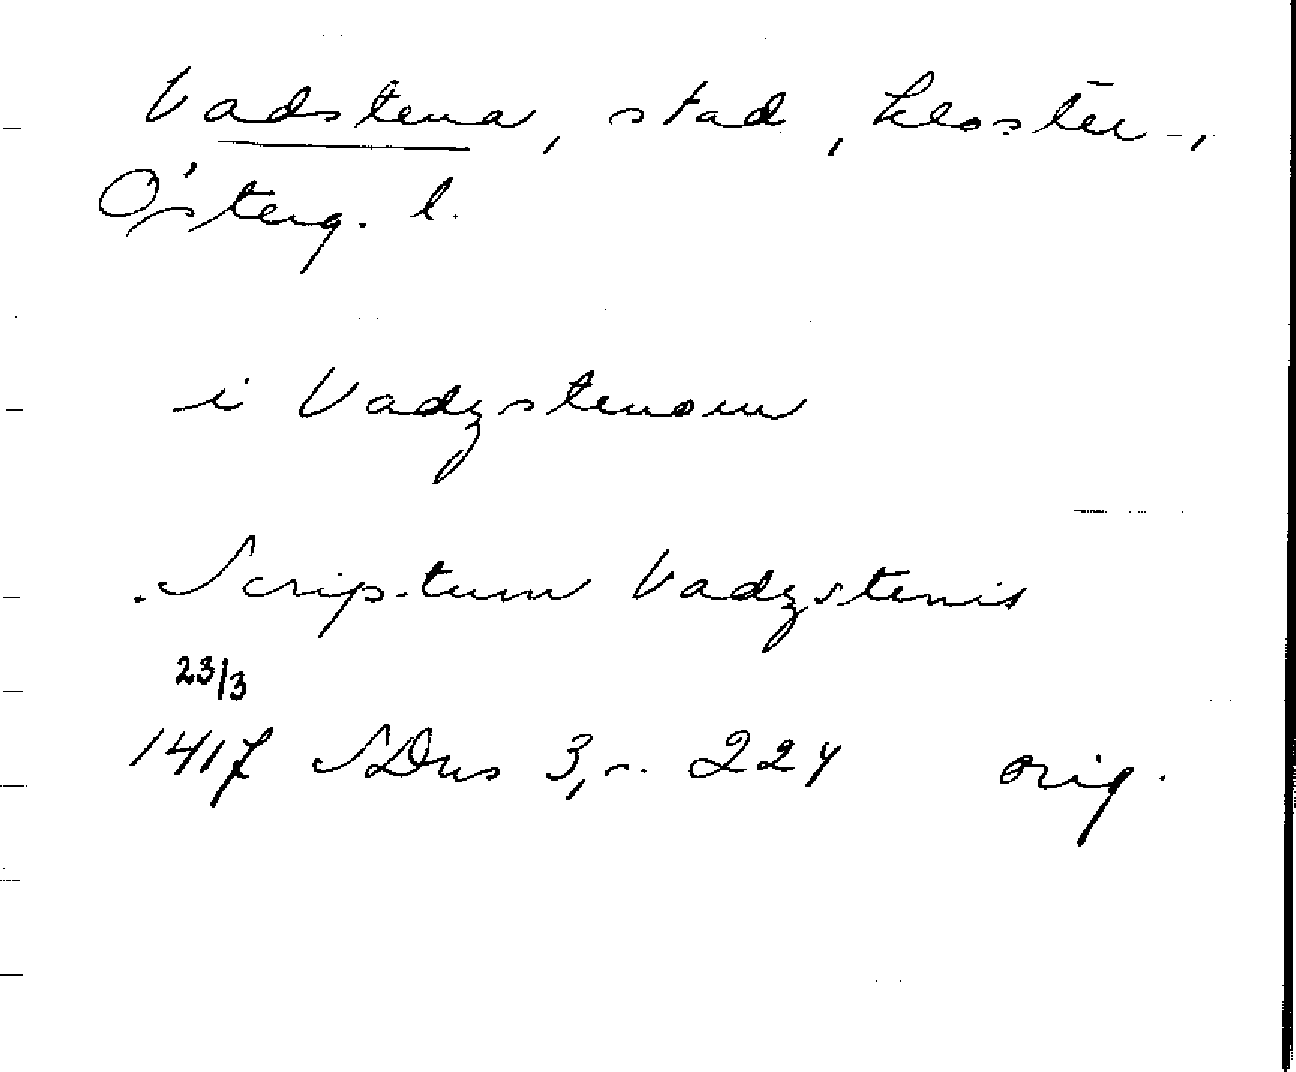 Vadstena, stad, kloster -,
Österg. l.
i Vadzstenom
Scriptum Vadzstenis
23/3
1417 SDns 3, s. 224 orig.